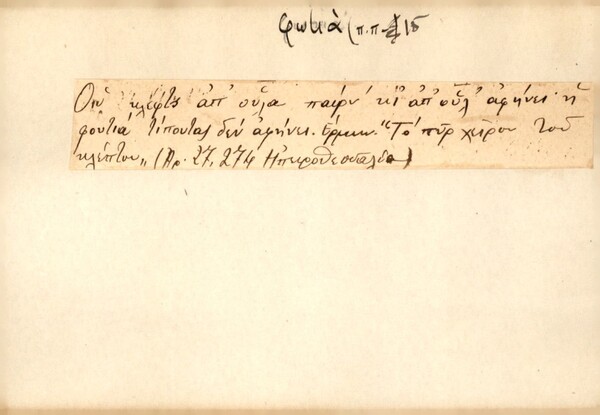 φωτιά (π.π. 15
Οὑ κλέφτς ἀπ' οὗλα παίρν' κι ἀπ' οὗλ' ἀφήνει· ἡ
φουτιά τίπουτας δέν ἀφήνει. Ἑρμην. "Τό πῦρ χεῖρον τοῦ
κλέπτου„ (Αρ. 27, 274 Ἠπειροθεσσαλία)